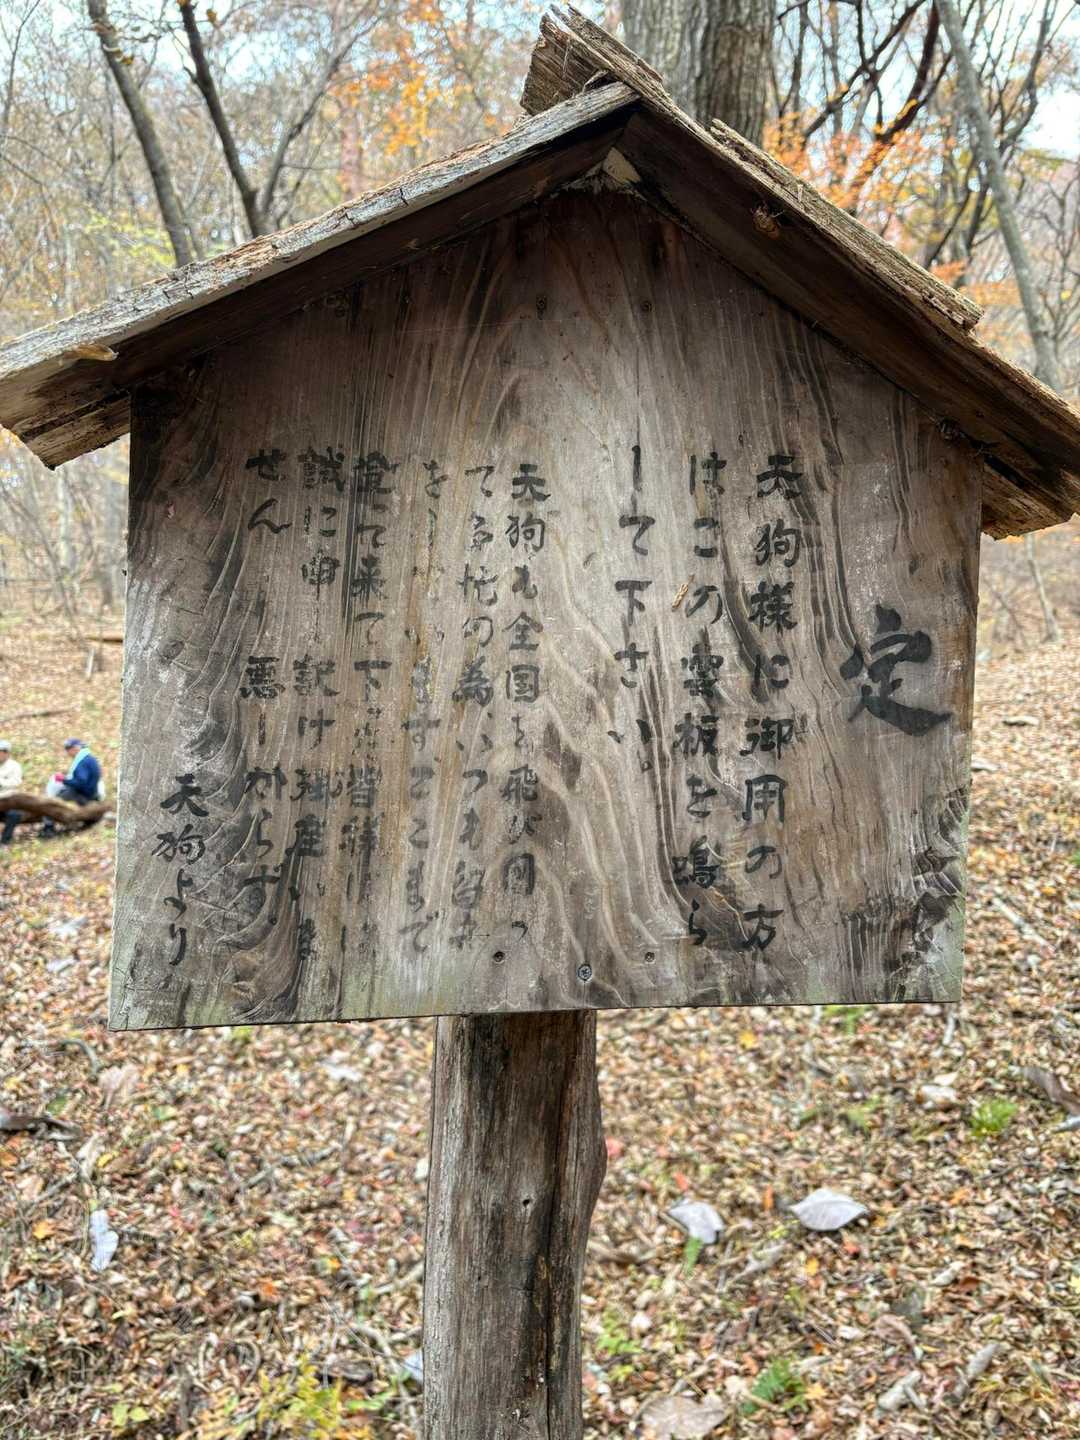 定
天狗様に御用の方
はこの雲板を鳴ら
して下さい。
天狗も全国を飛び回っ
て多忙の為、いつも留守
を ています。ここまで
登って来て下さ 皆様には
誠に申し訳け御座いま
せん 悪しからず。
天狗より